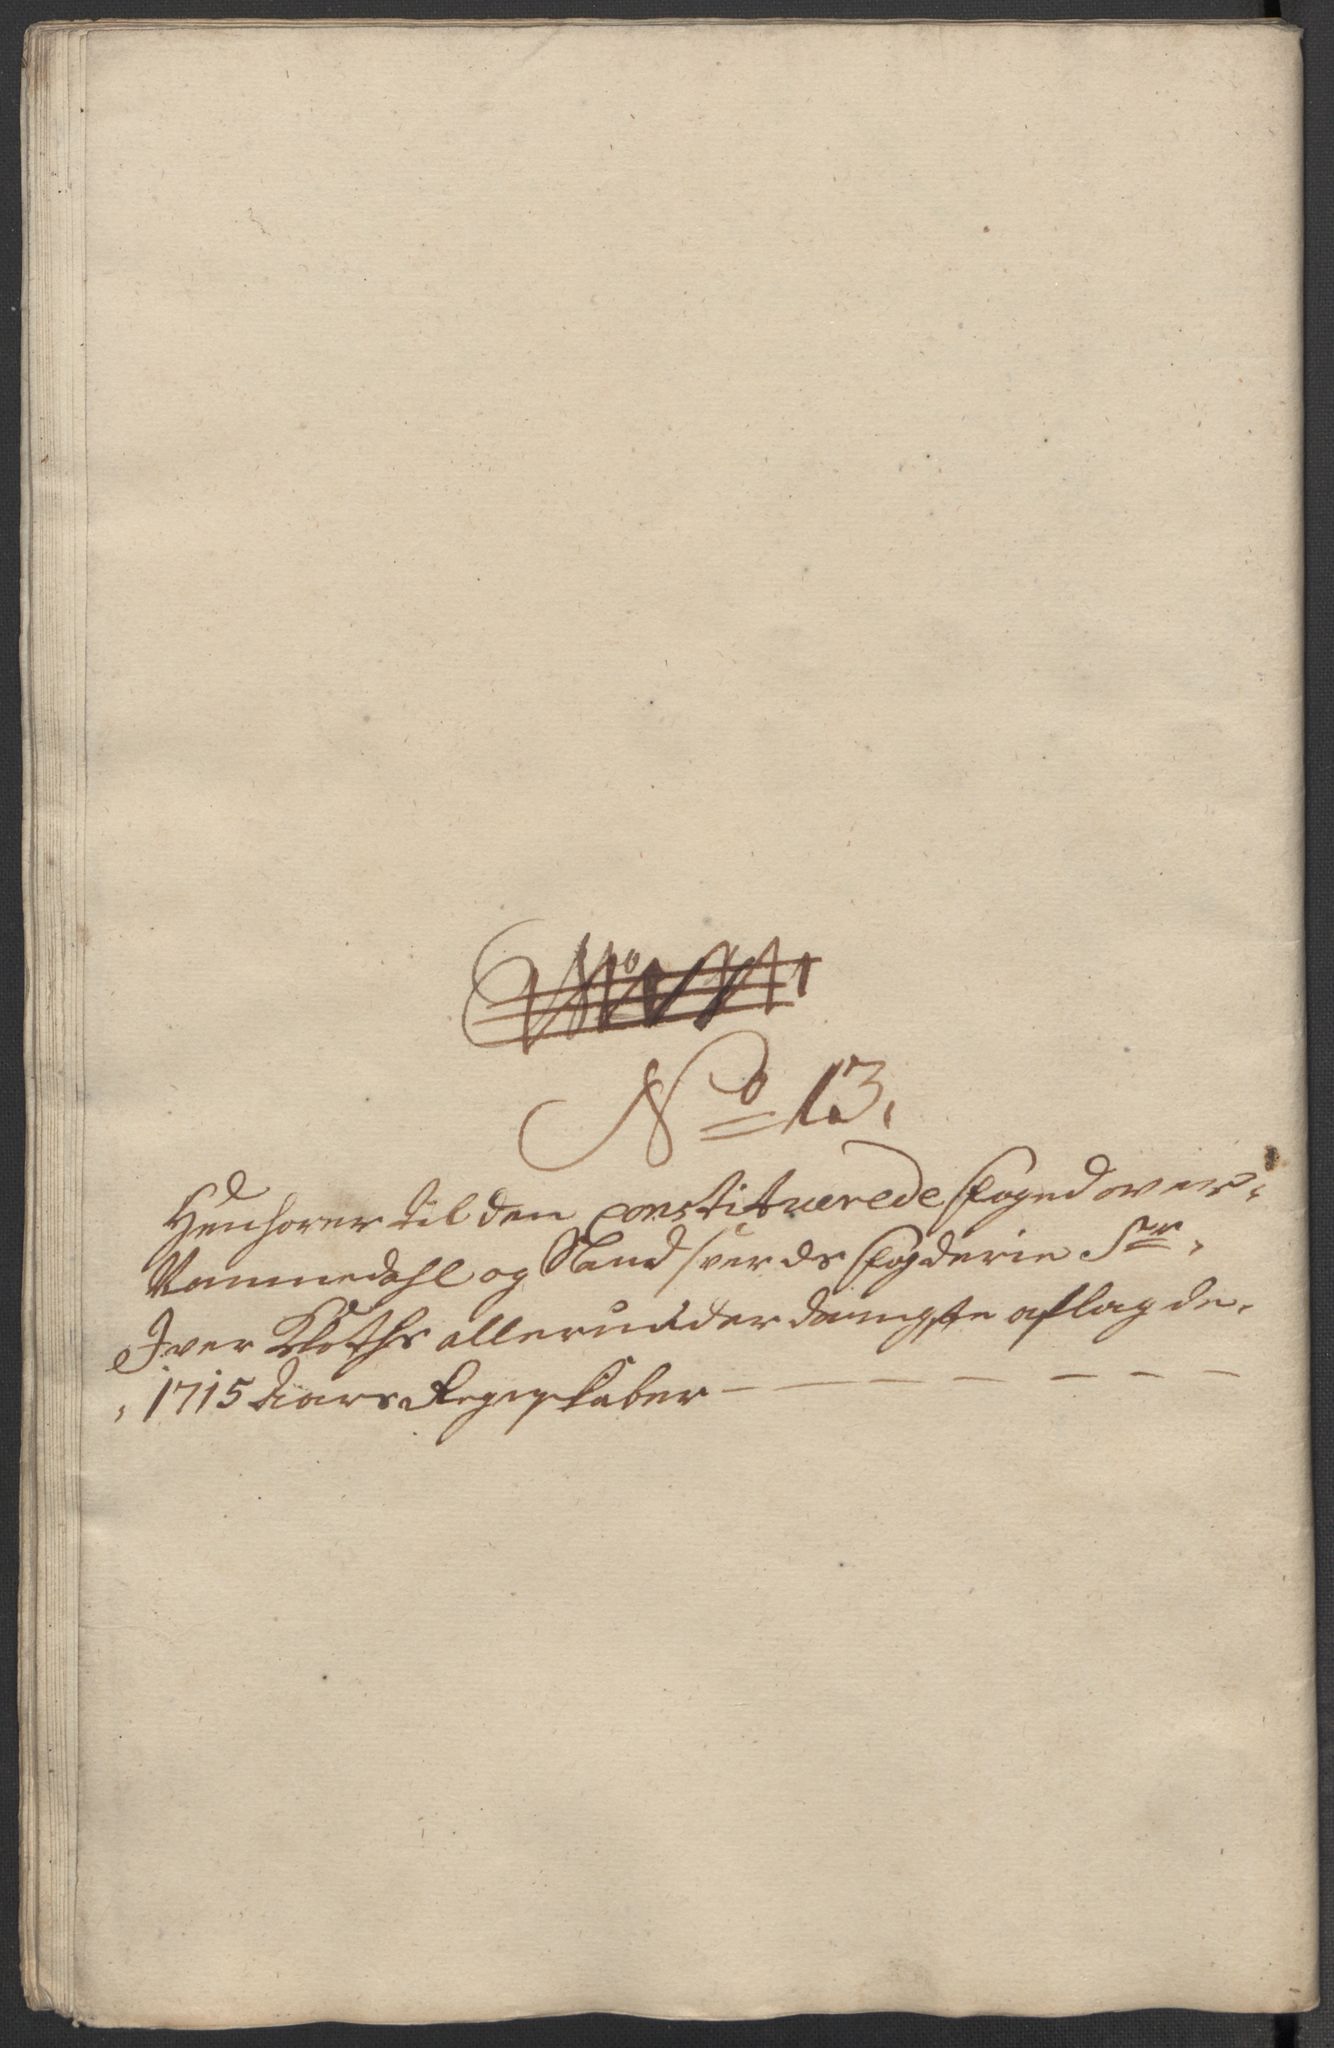 No 13.
Henhører til den constituerede foged over
Nammedahl og Sand sverds fogderie Sr.
Iver Roths allerunderdanigste aflagde
1715 Aars Regenskaber